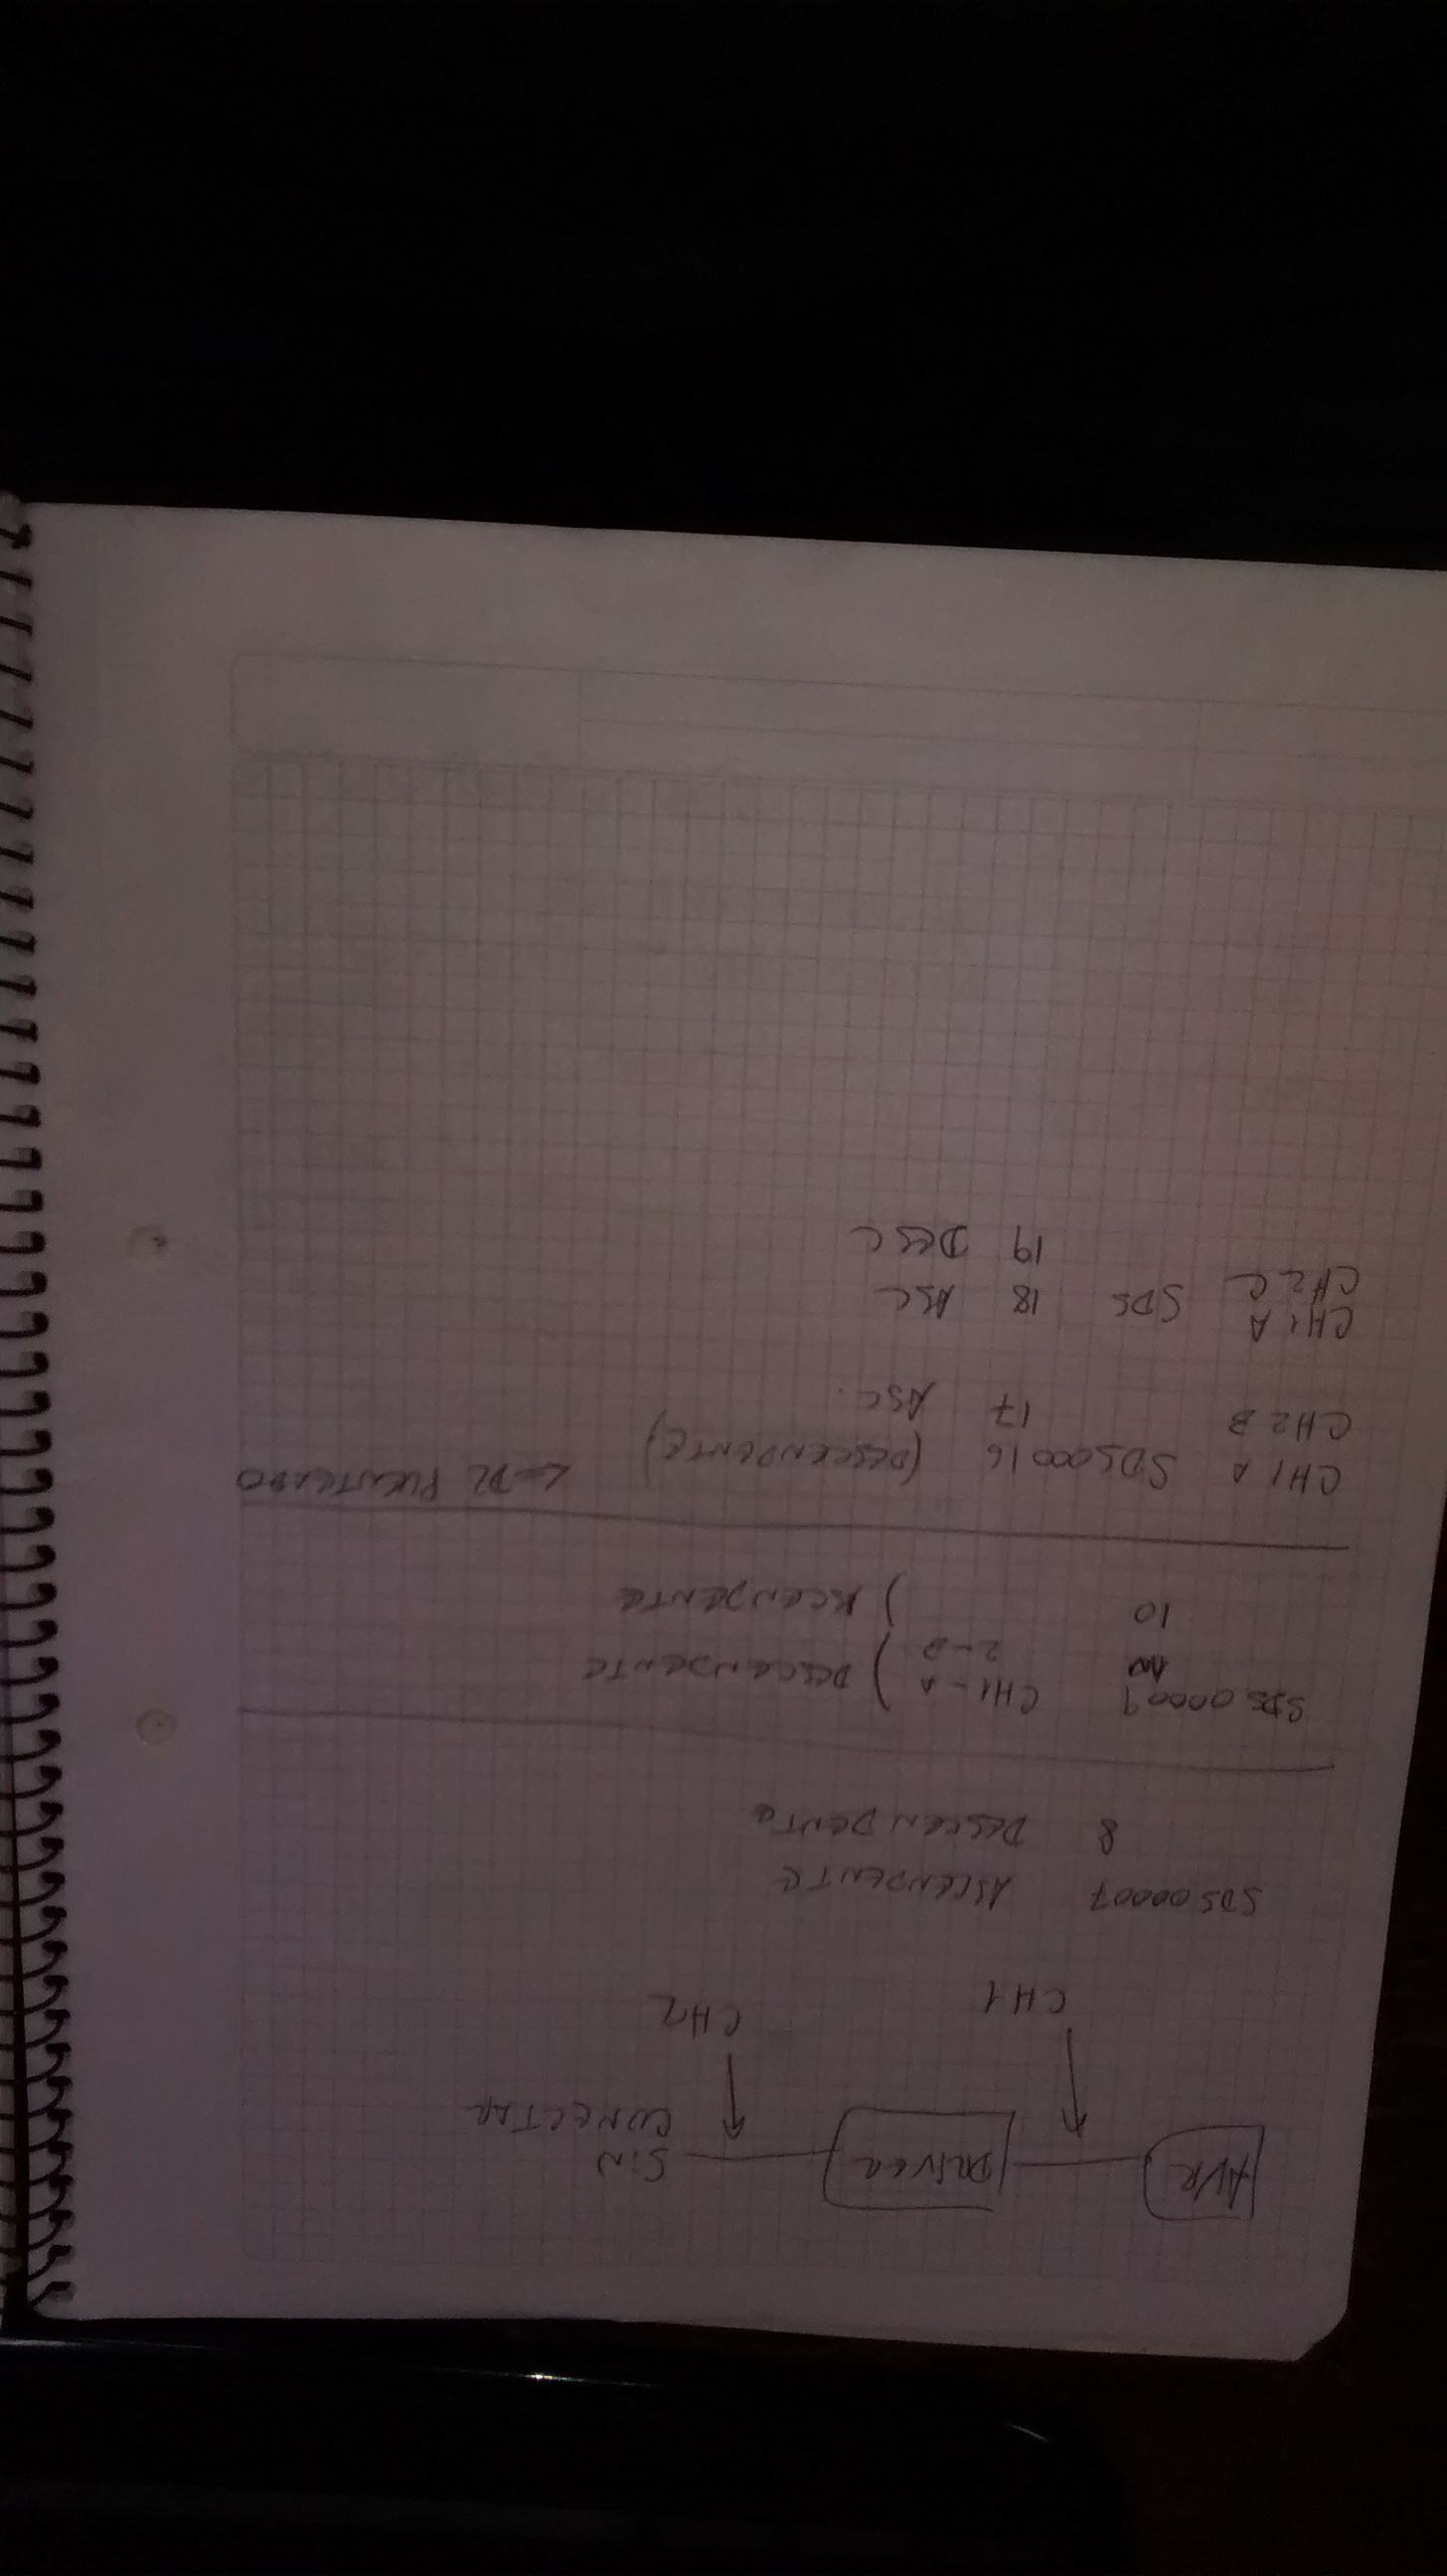 AVR DRIVER SIN
CONECTAR
CH1 CH2
SDS00007 ASCENDENTE
8 DESCENDENTE
SDS00009 CH1-A ) DESCENDENTE
2-B
10 ) ASCENDENTE
CH1 A SDS00016 (DESCENDENTE) L-DC PUENTEADO
CH2 B 17 ASC.
CH1 A SDS 18 ASC
CH2 C
19 DESC